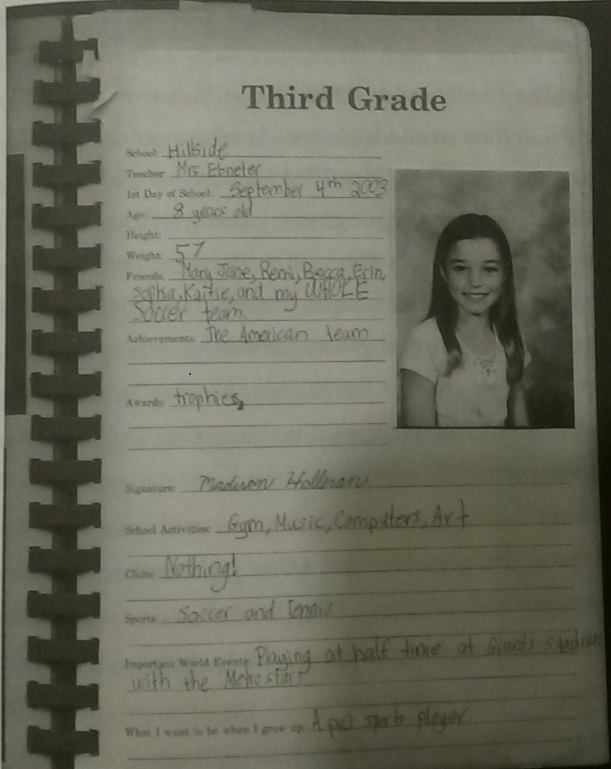 Third Grade
School: Hillside
Teacher: Mrs. Ebneter
1st Day of School: September 4th 2003
Age: 8 years old
Height:
Weight: 57
Friends: Mary Jane, Remi, Becca, Erin,
Sophia, Kaitie, and my WHOLE
Soccer team.
Achievements: The American team
Awards: trophies,
Signature: Madison Holleran
School Activities: Gym, Music, Computers, Art
Clubs: Nothing!
Sports: Soccer and Tennis
Important World Events: Playing at half time at Giants stadium
with the Metrostars
What I want to be when I grow up: A pro sports player